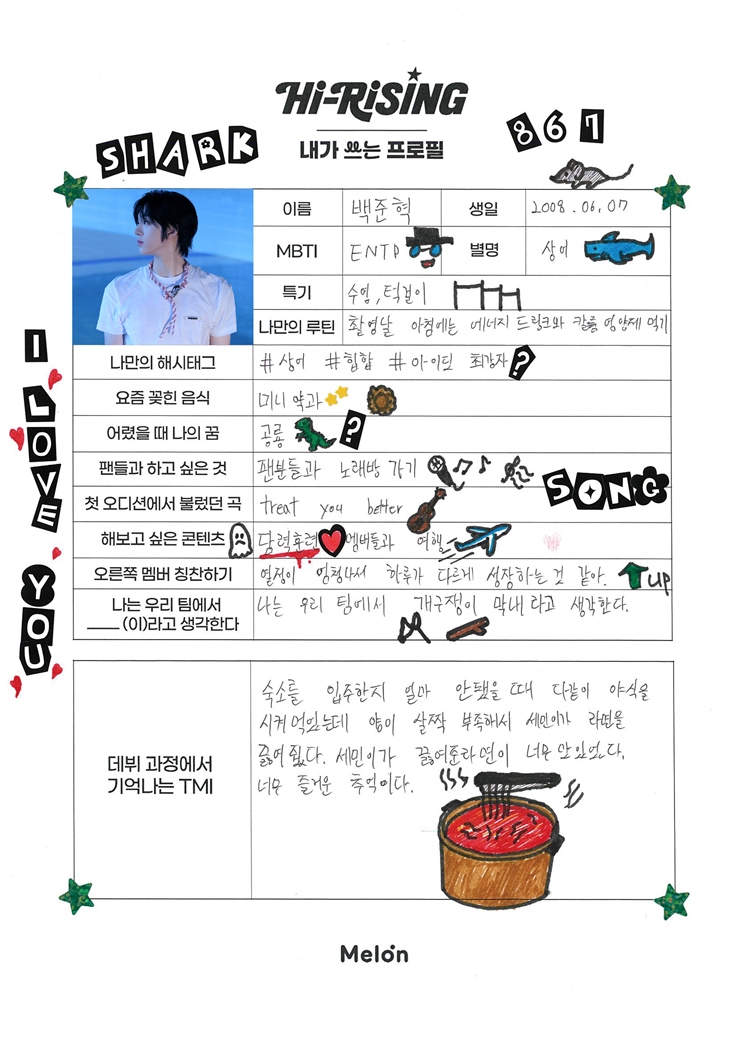 Hi-RiSiNG
내가 쓰는 프로필
SHARK
867
이름 백준혁 생일 2008.06.07
MBTI ENTP 별명 상어
특기 수영, 턱걸이
나만의 루틴 촬영날 아침에는 에너지 드링크와 칼륨 영양제 먹기
나만의 해시태그 #상어 #힙합 #아이틴 최강자?
요즘 꽂힌 음식 미니 약과
어렸을 때 나의 꿈 공룡 ?
팬들과 하고 싶은 것 팬분들과 노래방 가기
SONG
첫 오디션에서 불렀던 곡 treat you better
해보고 싶은 콘텐츠 담력훈련 멤버들과 여행
오른쪽 멤버 칭찬하기 열정이 엄청나서 하루가 다르게 성장하는 것 같아. UP
나는 우리 팀에서 나는 우리 팀에서 개구쟁이 막내 라고 생각한다.
____ (이)라고 생각한다
I LOVE YOU
데뷔 과정에서
기억나는 TMI
숙소를 입주한지 얼마 안됐을 때 다같이 야식을
시켜 먹었는데 양이 살짝 부족해서 세민이가 라면을
끓여줬다. 세민이가 끓여준라면이 너무 맛있었다.
너무 즐거운 추억이다.
Melon